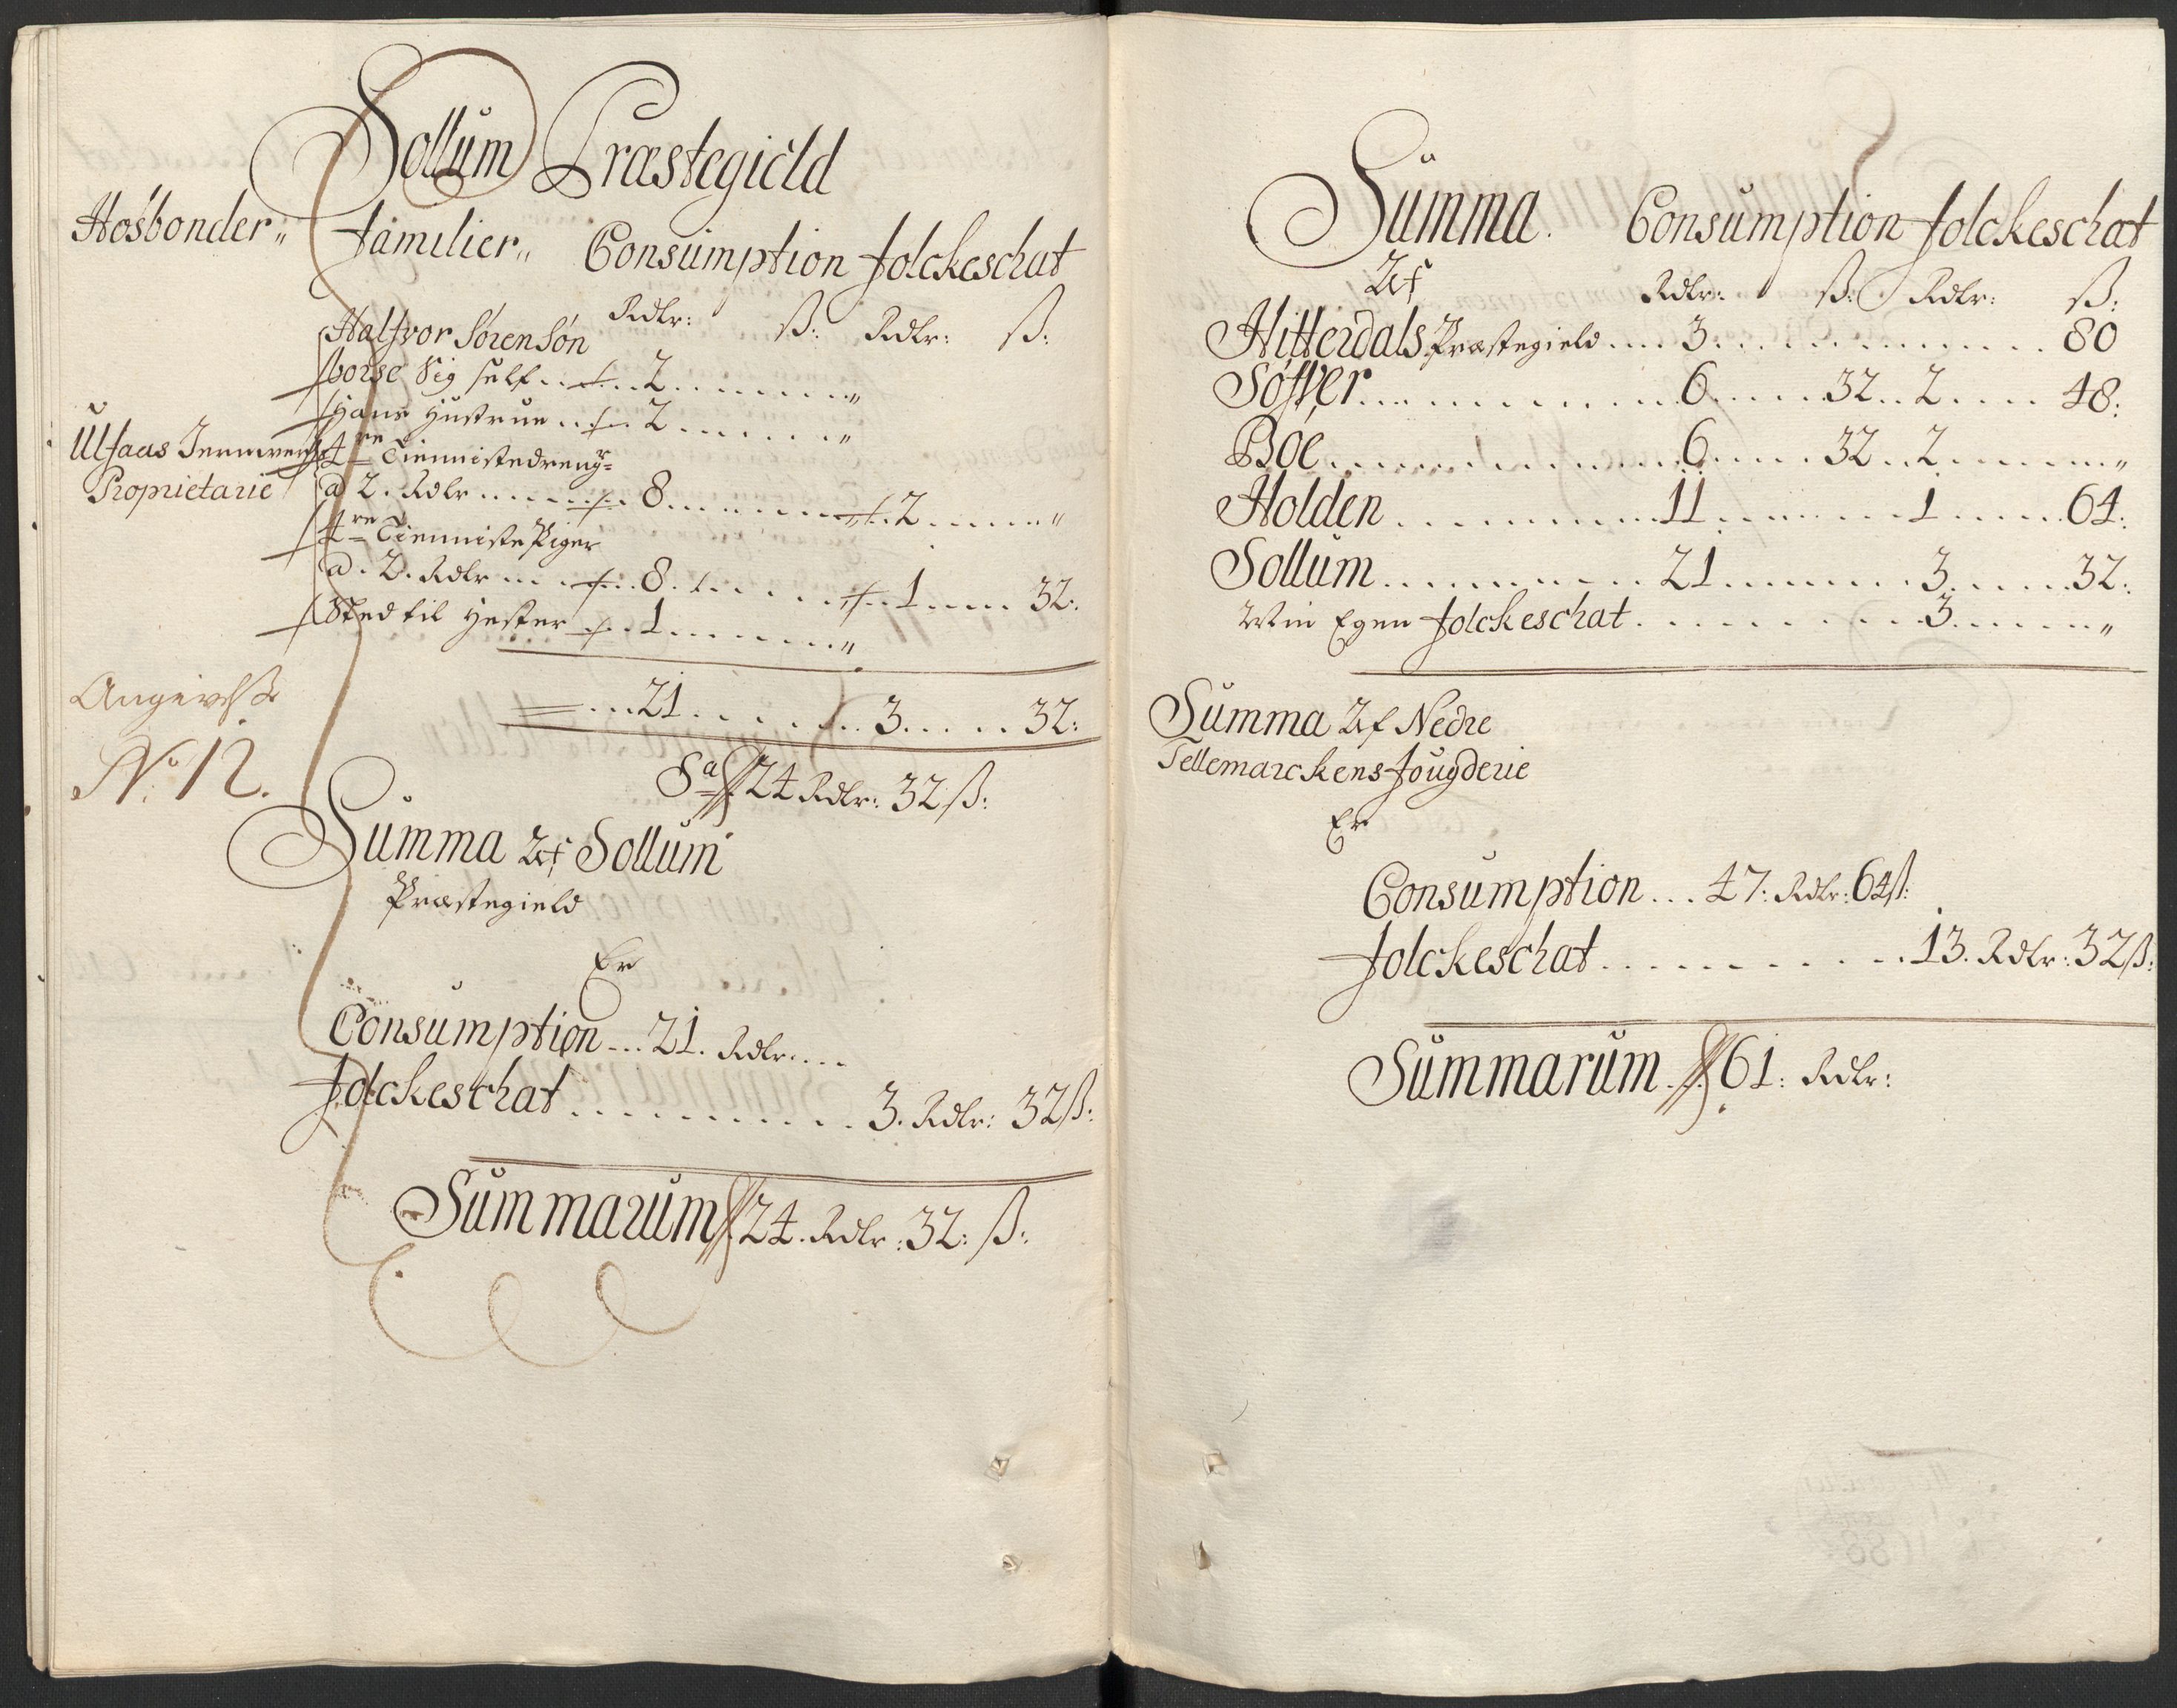 Sollum Præstegield
Hosbonder„ Familier„ Consumption Folckeschat
Rdlr: ß: Rdlr: ß:
Halfvor Sørensøn
borse Sig self . . 2 . . . . „
Hans Hustrue . . 2 . . . . „
Ulfaas Jernverchs 4re Tiennistedrenge
Proprietarie a 2. Rdlr . . . . 8 . . . . 2 . . . . „
4re Tienniste Piger
a. 2. Rdlr . . . 8 . . . . 1 . . . . 32:
Sted til Hester . . 1 . . . . „
. . . 21 . . . . 3 . . . . 32:
Angivelse
No. 12.
Sa 24 Rdlr: 32 ß:
Summa Af Sollum
Præstegield
Er
Consumption . . . 21. Rdlr . . . .
Folckeschat . . . . 3. Rdlr: 32 ß:
Summarum 24. Rdlr: 32: ß:
Summa. Consumption Folckeschat
Af Rdlr: ß: Rdlr: ß:
Hitterdals Præstegield . . . 3 . . . . 80
Søfver . . . . 6 . . . . 32 . . 2 . . . . 48:
Boe . . . . 6 . . . . 32 . . 2 . . . . „
Holden . . . . 11 . . . . 1 . . . . 64:
Sollum . . . . 21 . . . . 3 . . . . 32:
Min Egen Folckeschat . . . . 3 . . . . „
Summa Af Nedre
Tellemarckens Fougderie
Er
Consumption . . . 47: Rdlr: 64 ß:
Folckeschat . . . . 13. Rdlr: 32 ß:
Summarum . 61: Rdlr: